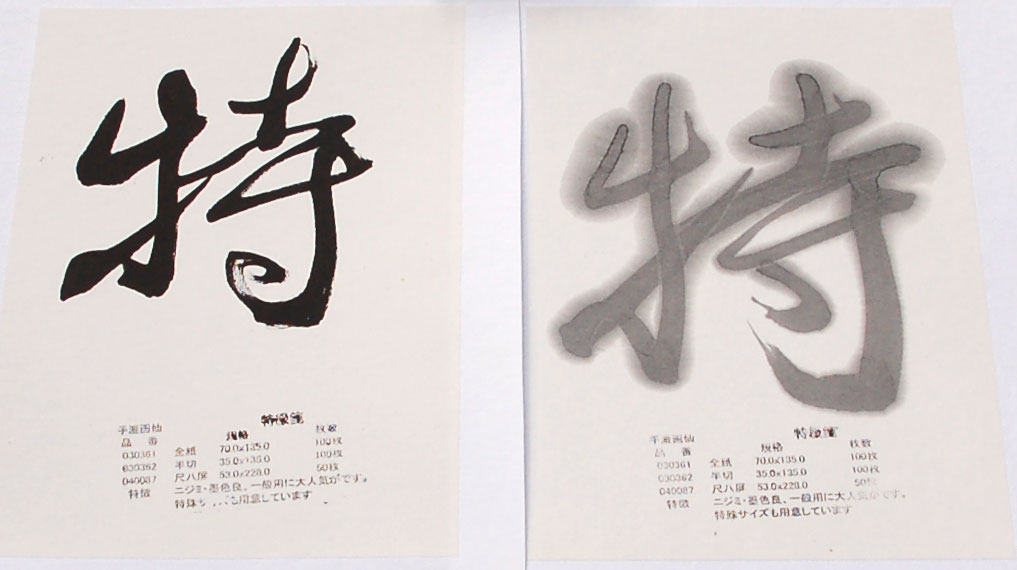 特
特級箋
手漉画仙 規格 枚数
品番
030361 全紙 70.0x135.0 100枚
030362 半切 35.0x135.0 100枚
040087 尺八屏 53.0x228.0 50枚
特徴 ニジミ・墨色良、一般用に大人気がです。
特殊サイズも用意しています
特
特級箋
手漉画仙 規格 枚数
品番
030361 全紙 70.0x135.0 100枚
030362 半切 35.0x135.0 100枚
040087 尺八屏 53.0x228.0 50枚
特徴 ニジミ・墨色良、一般用に大人気がです。
特殊サイズも用意しています